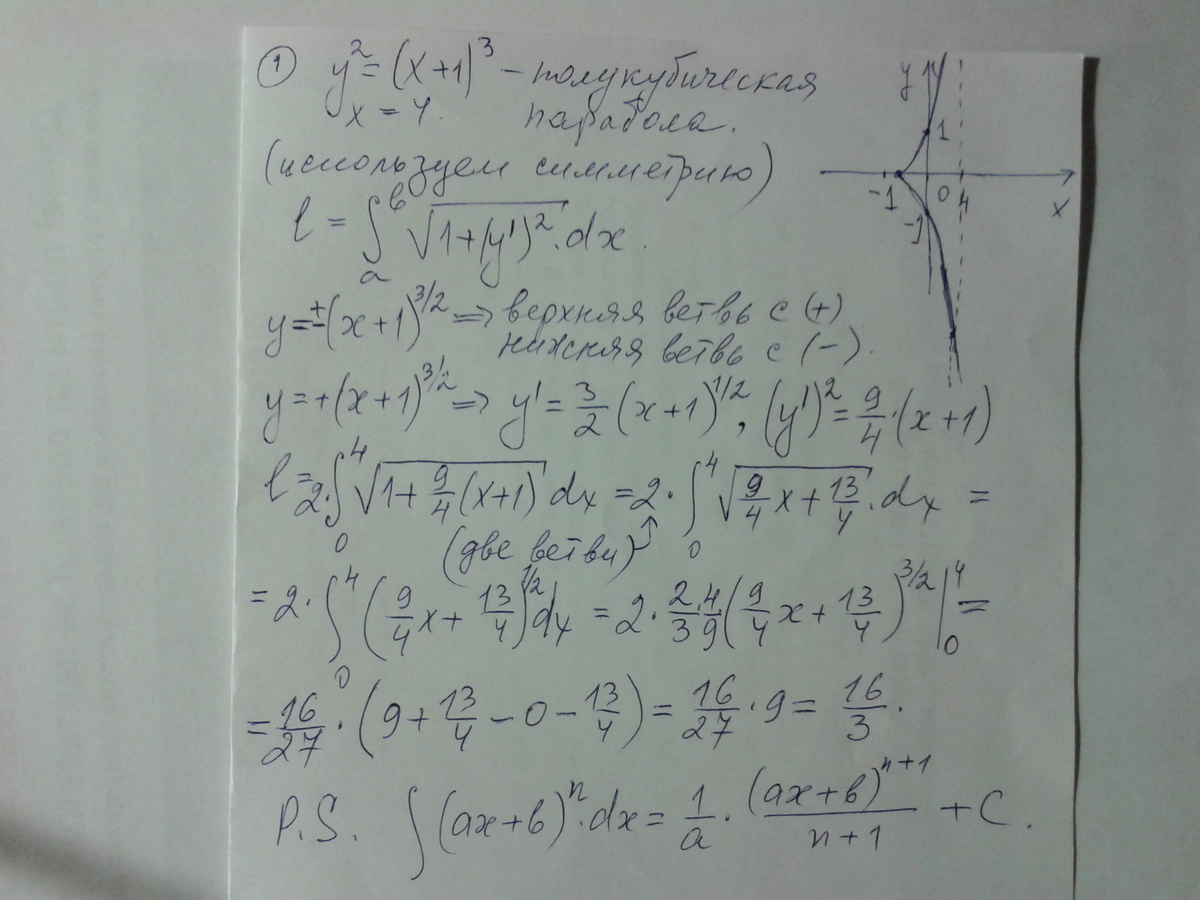 ① y² = (x+1)³ – полукубическая
x = 4. парабола.
(используем симметрию)
l = ∫ₐᵇ √(1+(y')²) · dx.
y = ±(x+1)^(3/2) ⇒ верхняя ветвь с (+)
нижняя ветвь с (–).
y = +(x+1)^(3/2) ⇒ y' = 3/2 (x+1)^(1/2), (y')² = 9/4 · (x+1)
l = 2·∫₀⁴ √(1 + 9/4 (x+1)) dx = 2 · ∫₀⁴ √(9/4 x + 13/4) · dx =
(две ветви)
= 2 · ∫₀⁴ (9/4 x + 13/4)^(1/2) dx = 2 · 2/3 · 4/9 (9/4 x + 13/4)^(3/2) |₀⁴ =
= 16/27 · (9 + 13/4 – 0 – 13/4) = 16/27 · 9 = 16/3.
P.S. ∫ (ax+b)ⁿ · dx = 1/a · (ax+b)^(n+1)/(n+1) + C.
y
1
-1 0 4 x
-1